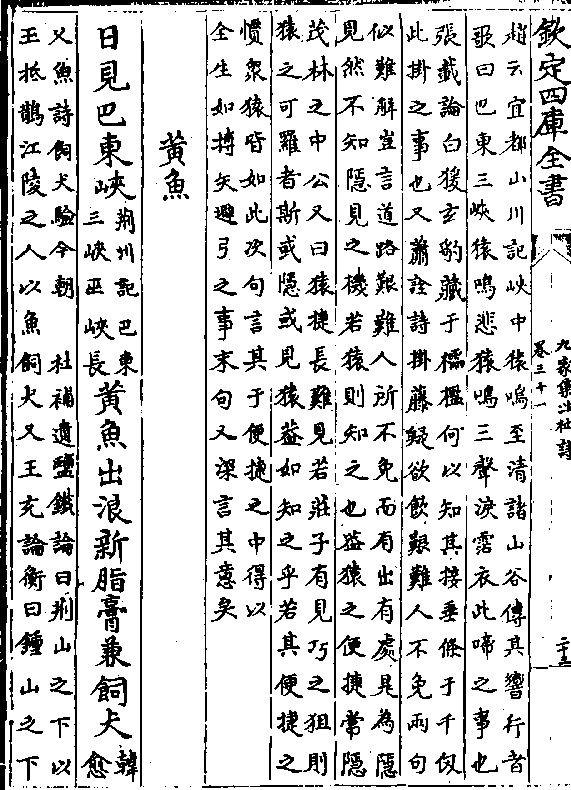 欽定四庫全書
九家集注杜詩
卷三十一
二十三
趙云宜都山川記峽中猿鳴至清諸山谷傳其響行者
歌曰巴東三峽猿鳴悲猿鳴三聲淚霑衣此啼之事也
張載論白猨玄豹藏于櫺檻何以知其接垂條于千仭
此掛之事也又蕭詮詩掛藤疑欲飲艱難人不免兩句
似難解豈言道路艱難人所不免而有出有處見為隱
見然不知隱見之機若猿則知之也盖猿之便捷常隱
茂林之中公又曰猿捷長難見若莊子有見巧之狙則
猿之可羅者斯或隱或見猿葢如知之乎若其便捷之
慣衆猿皆如此次句言其于便捷之中得以
全生如搏矢避弓之事末句又深言其意矣
黃魚
日見巴東峽荆州記巴東三峽巫峽長黃魚出浪新脂膏兼飼犬韓愈
又魚詩飼犬驗今朝 杜補遺鹽鐵論曰荆山之下以
玉抵鵲江陵之人以魚飼犬又王充論衡曰鍾山之下